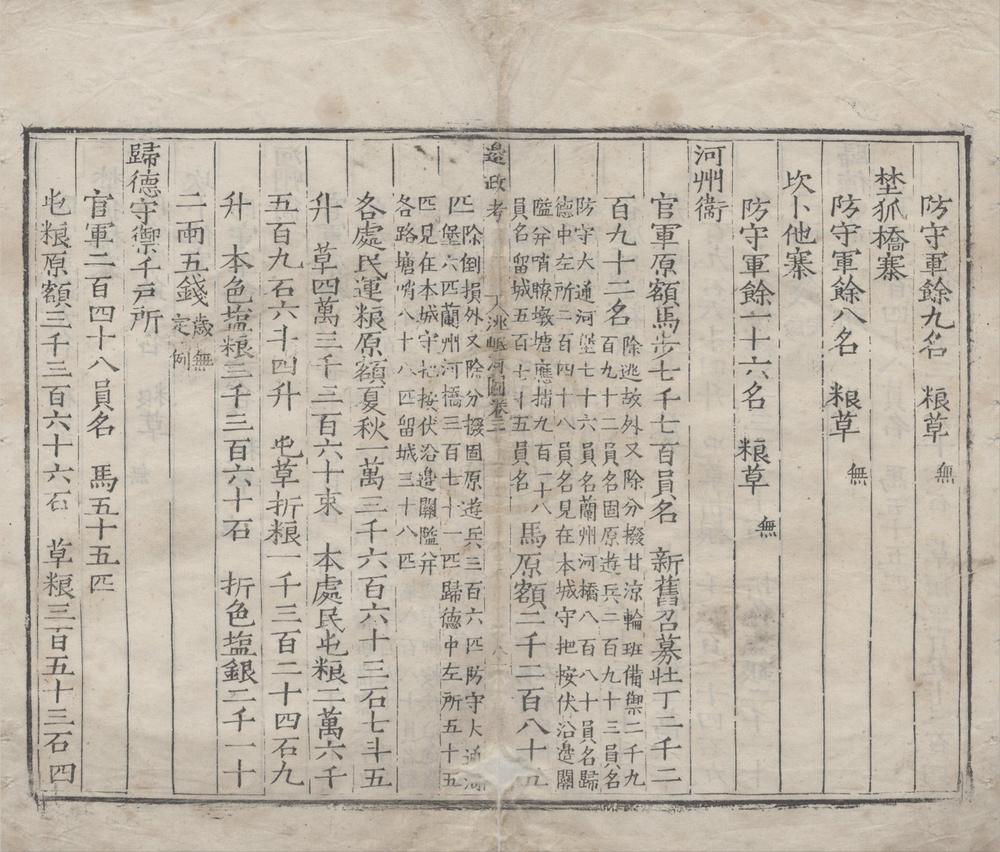 防守軍餘九名　粮草無
埜狐橋寨
防守軍餘八名　粮草無
坎卜他寨
防守軍餘一十六名　粮草無
河州衞
官軍原額馬步七千七百員名　新舊召募壯丁二千二
百九十二名除逃故外又除分撥甘凉輪班備禦二千九
百九十二員名固原逰兵二百九十三員名
防守大通河堡七十六員名蘭州河橋八百八十員名歸
德中左所二百四十八員名見在本城守把按伏沿邉關
隘并哨瞭墩塘應揹九百二十八
員名留城五百七十五員名馬原額二千二百八十五
邉政考　洮岷河圖卷三　八
匹除倒損外又除分撥固原逰兵三百六匹防守大通河
堡六匹蘭州河橋三百七十一匹歸德中左所五十五
匹見在本城守把按伏沿邉關隘并
各路塘哨八十八匹留城三十八匹
各處民運粮原額夏秋一萬三千六百六十三石七斗五
升　草四萬三千三百六十束　本處民屯粮二萬六千
五百九石六斗四升　屯草折粮一千三百二十四石九
升　本色塩粮三千三百六十石　折色塩銀二千一十
二兩五錢歲無
定例
歸德守禦千戸所
官軍二百四十八員名　馬五十五匹
屯粮原額三千三百六十六石　草粮三百五十三石四